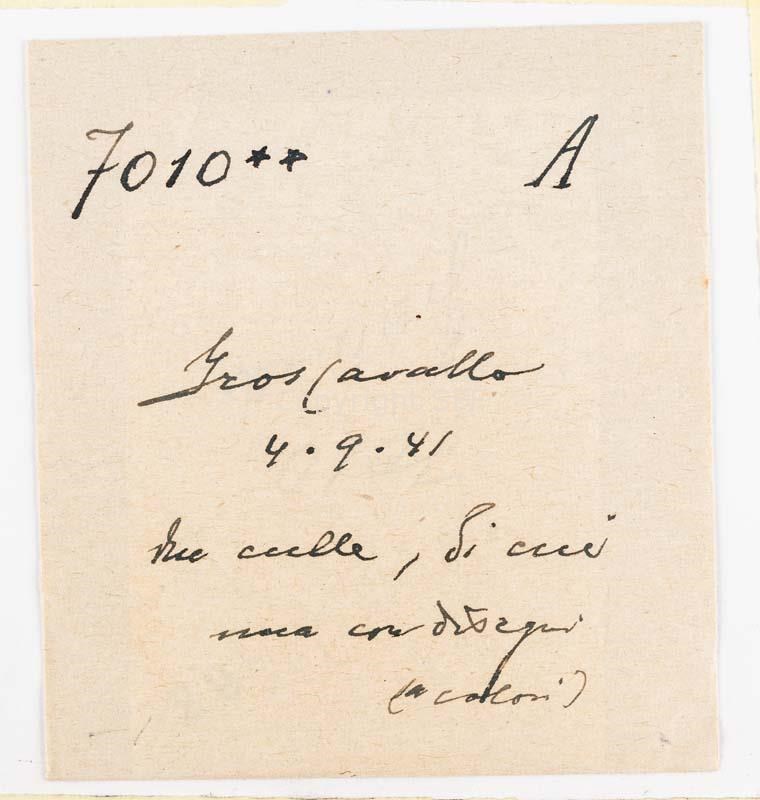 7010** A
Groscavallo
4.9.41
due culle, di cui
una con disegni
(a colori)